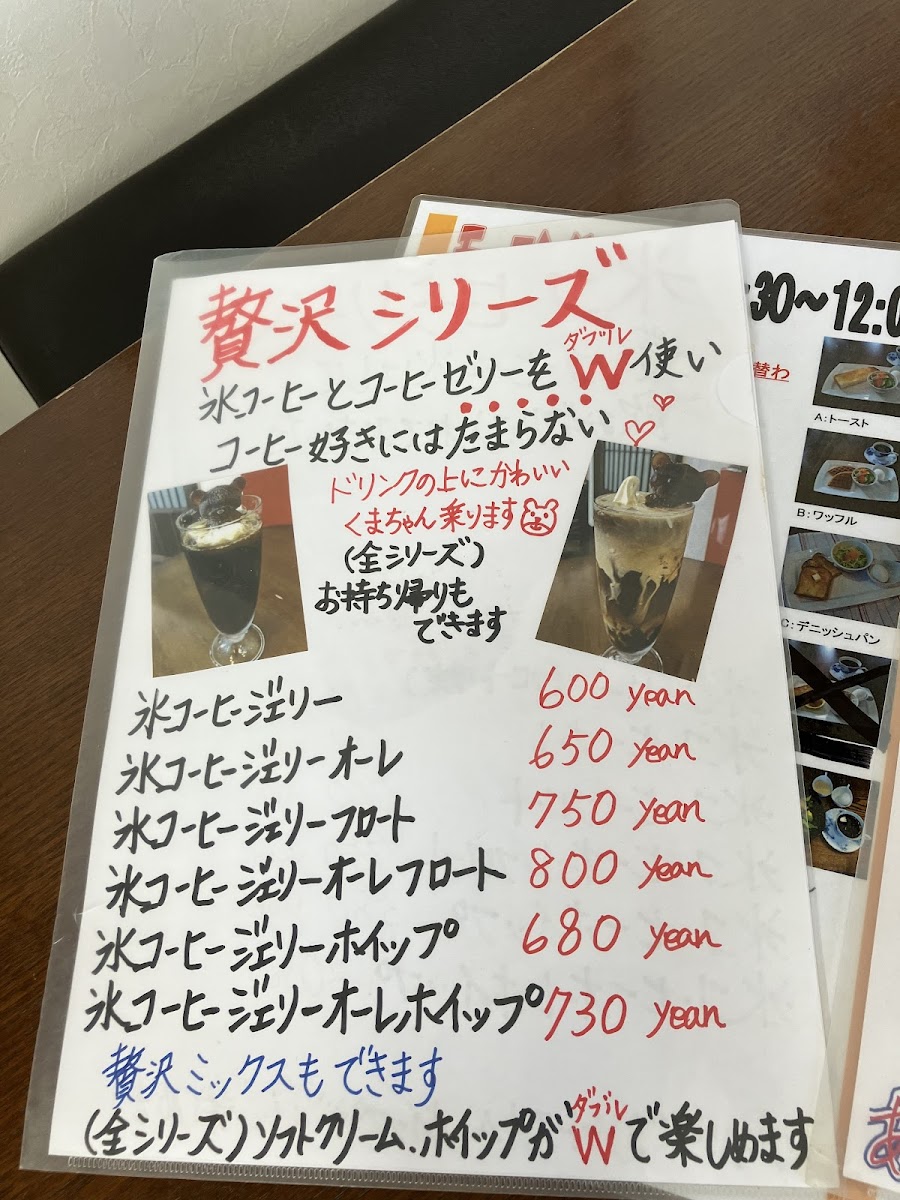 贅沢シリーズ
氷コーヒーとコーヒーゼリーをW使い
ダブル
コーヒー好きにはたまらない♡♡
ドリンクの上にかわいい
くまちゃん乗ります
(全シリーズ)
お持ち帰りも
できます
氷コーヒージェリー 600 yean
氷コーヒージェリーオーレ 650 yean
氷コーヒージェリーフロート 750 yean
氷コーヒージェリーオーレフロート 800 yean
氷コーヒージェリーホイップ 680 yean
氷コーヒージェリーオーレホイップ 730 yean
贅沢ミックスもできます
(全シリーズ)ソフトクリーム、ホイップがWで楽しめます
ダブル
30〜12:0
替わ
A:トースト
B:ワッフル
C:デニッシュパン
あ